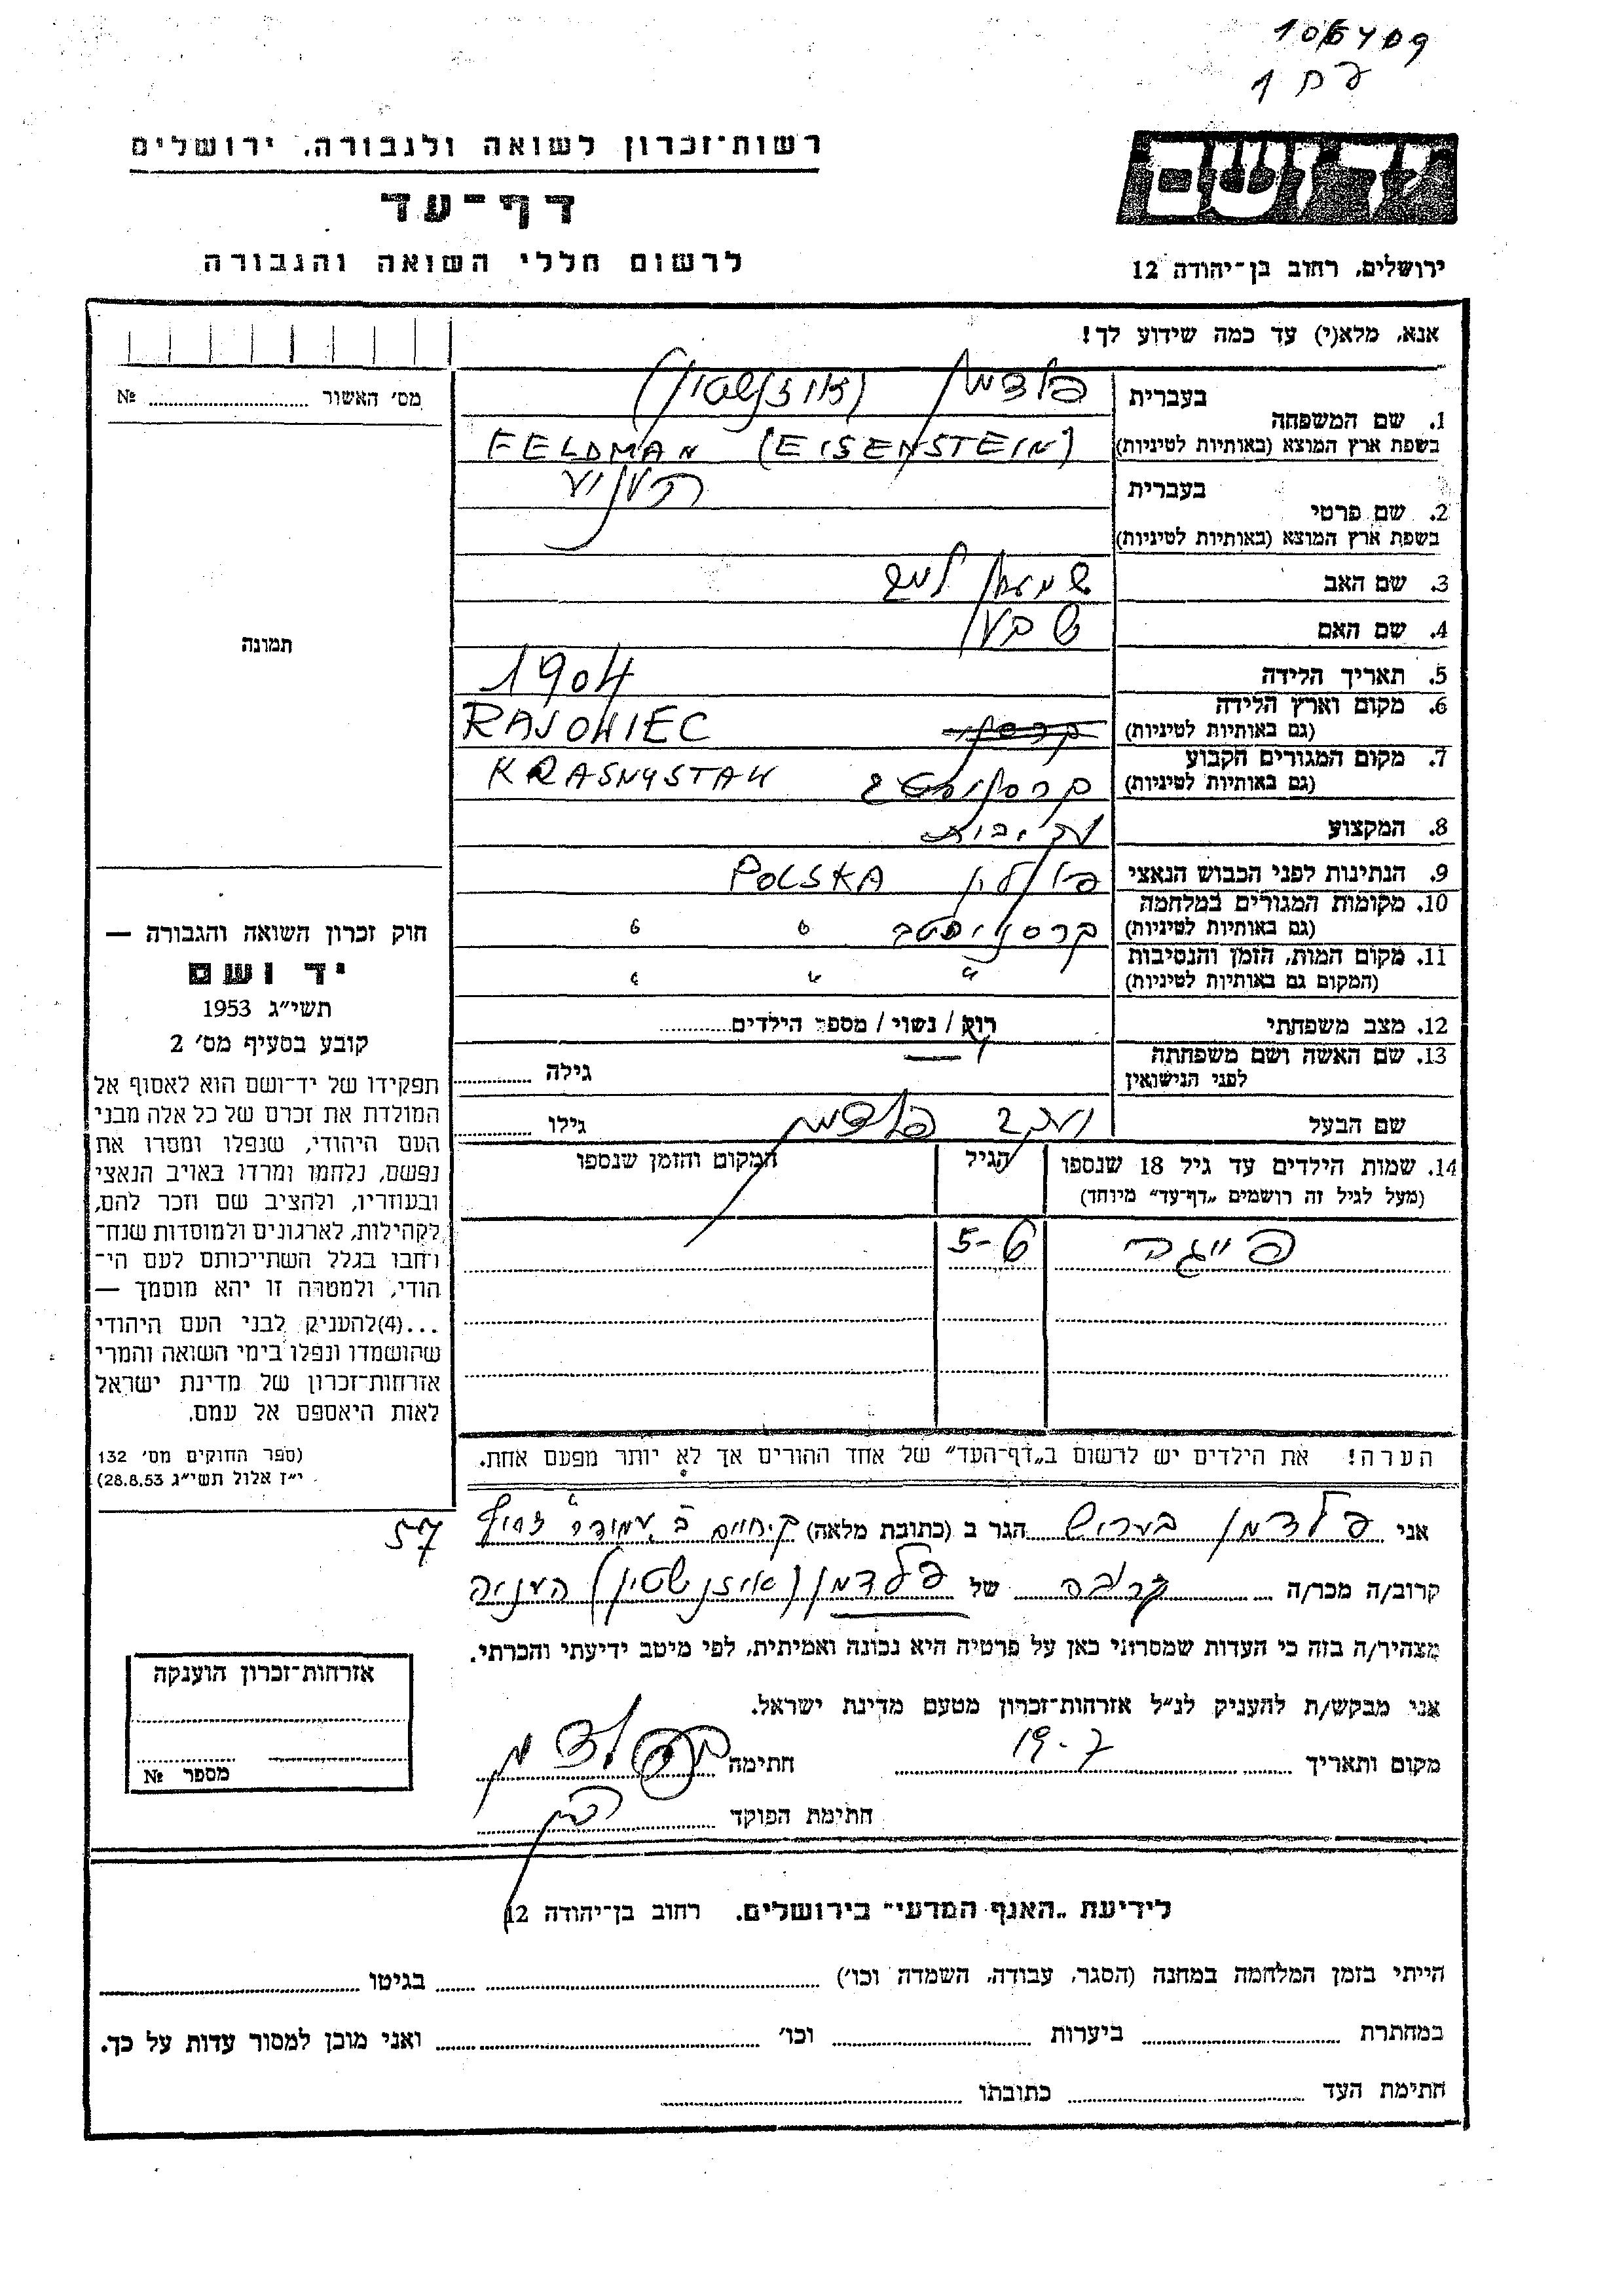 106409
דף 1
יד ושם
רשות־זכרון לשואה ולגבורה, ירושלים
דף־עד
לרשום חללי השואה והגבורה
ירושלים, רחוב בן־יהודה 12
אנא, מלא(י) עד כמה שידוע לך!
מס׳ האשור № 
1. שם המשפחה
בעברית פלדמן (אייזנשטיין)
בשפת ארץ המוצא (באותיות לטיניות) FELDMAN (EISENSTEIN)
2. שם פרטי
בעברית
בשפת ארץ המוצא (באותיות לטיניות)
3. שם האב
4. שם האם
5. תאריך הלידה 1904
6. מקום וארץ הלידה
(גם באותיות לטיניות) RAJOWIEC
7. מקום המגורים הקבוע
(גם באותיות לטיניות) קרסניסטב KRASNYSTAW
8. המקצוע
9. הנתינות לפני הכבוש הנאצי פולין POLSKA
10. מקומות המגורים במלחמה
(גם באותיות לטיניות) קרסניסטב " "
11. מקום המות, הזמן והנסיבות
(המקום גם באותיות לטיניות) " " "
12. מצב משפחתי רוק / נשוי / מספר הילדים
13. שם האשה ושם משפחתה
לפני הנישואין גילה
שם הבעל יעקב פלדמן גילו
14. שמות הילדים עד גיל 18 שנספו הגיל המקום והזמן שנספו
(מעל לגיל זה רושמים „דף־עד״ מיוחד)
פייגה 5-6
הערה! את הילדים יש לרשום ב„דף־העד״ של אחד ההורים אך לא יותר מפעם אחת.
תמונה
חוק זכרון השואה והגבורה —
יד ושם
תשי״ג 1953
קובע בסעיף מס׳ 2
תפקידו של יד־ושם הוא לאסוף אל
המולדת את זכרם של כל אלה מבני
העם היהודי, שנפלו ומסרו את
נפשם, נלחמו ומרדו באויב הנאצי
ובעוזריו, ולהציב שם וזכר להם,
לקהילות, לארגונים ולמוסדות שנח־
רחבו בגלל השתייכותם לעם הי־
הודי, ולמטרה זו יהא מוסמך —
...(4) להעניק לבני העם היהודי
שהושמדו ונפלו בימי השואה והמרי
אזרחות־זכרון של מדינת ישראל
לאות היאספם אל עמם.
(ספר החוקים מס׳ 132
י״ז אלול תשי״ג 28.8.53)
אני פלדמן ברוש הגר ב (כתובת מלאה) ק. חיים ב. צריף 57
קרוב/ה מכר/ה קרובה של פלדמן (אייזנשטיין) העניה
מצהיר/ה בזה כי העדות שמסרתי כאן על פרטיה היא נכונה ואמיתית, לפי מיטב ידיעתי והכרתי.
אני מבקש/ת להעניק לנ״ל אזרחות־זכרון מטעם מדינת ישראל.
מקום ותאריך 19-7 חתימה פלדמן
חתימת הפוקד
אזרחות־זכרון הוענקה
מספר №
לידיעת „האגף המדעי״ בירושלים, רחוב בן־יהודה 12
הייתי בזמן המלחמה במחנה (הסגר, עבודה, השמדה וכו׳) בגיטו
במחתרת ביערות וכו׳ ואני מוכן למסור עדות על כך.
חתימת העד כתובתו